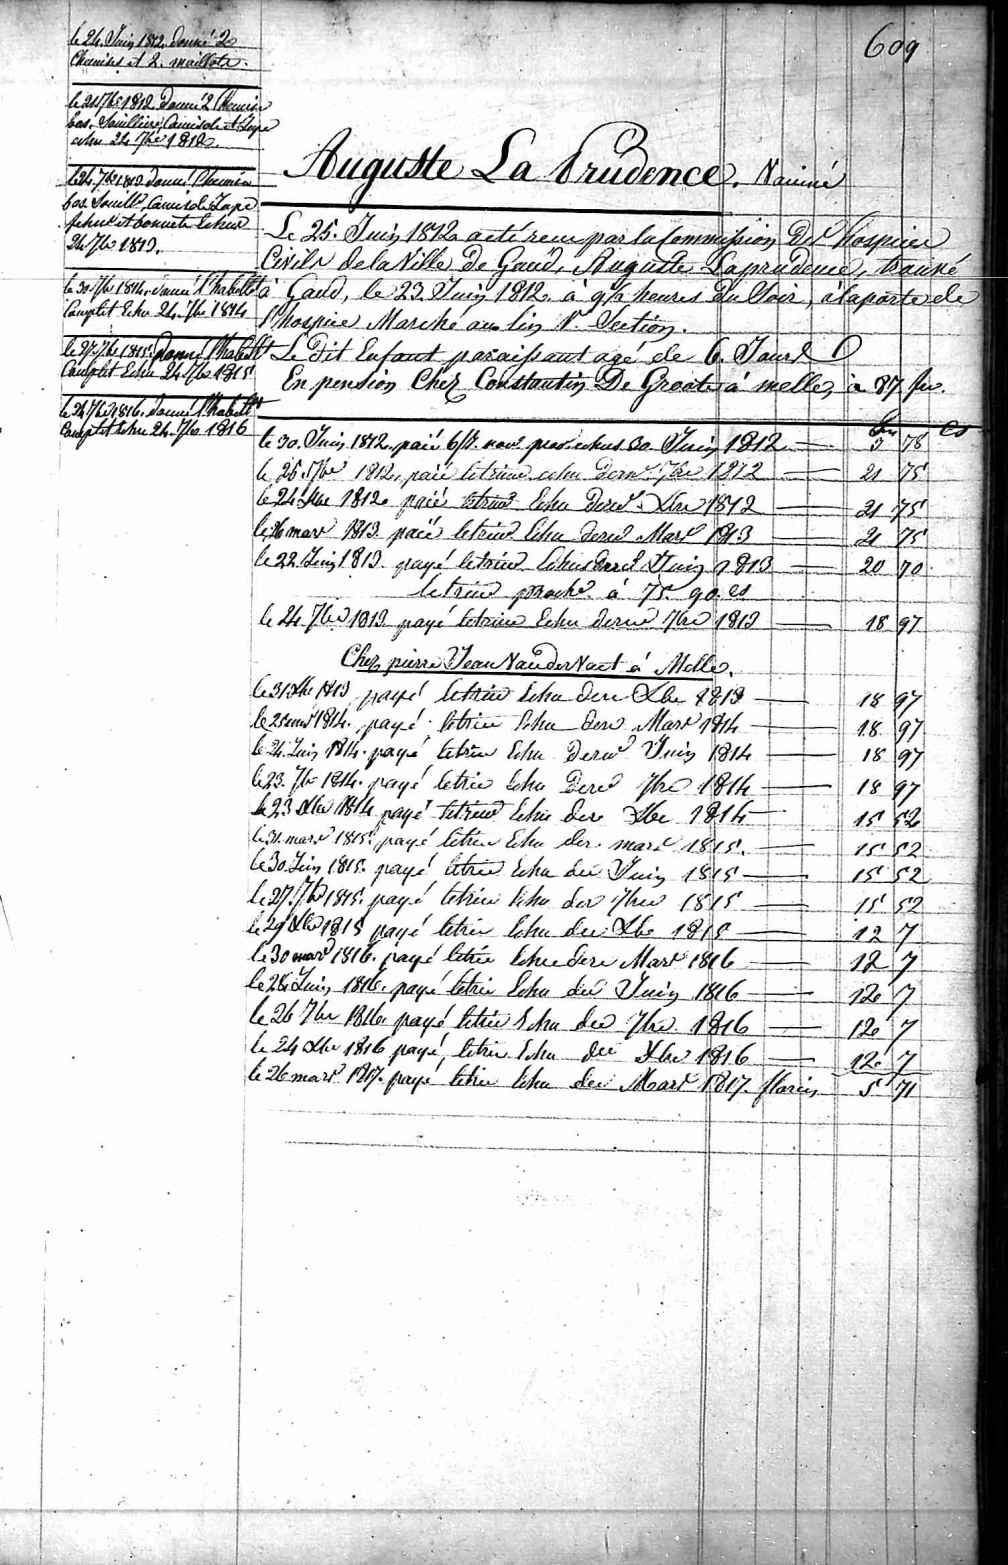 609
le 24. Juin 1812. donné 2
Chemises et 2. maillots.
le 24 7bre 1812. Donné 2 Chemises
bas, Souilliers, Camisole et Jupe
echu 24 7bre 1812.
le 24. 7bre 1813 donné Chemises
bas Souill. Camisole Jupe
fichus et bonnets Echus
24 7bre 1813.
le 30. 7bre 1814. donné l'habillt
Complet Echu 24. 7bre 1814
le 27. 7bre 1815. Donné l'habillt
Complet Echu 24 7bre 1815
le 24 7bre 1816. donné l'habillt
Complet Echu 24. 7bre 1816
Auguste La Prudence. Vacciné
Le 25. Juin 1812 acté reçu par la Commission Des hospices
Civils de la Ville de Gand, Auguste Laprudence, trouvé
à Gand, le 23 Juin 1812. à 9½ heures du Soir, à la porte de
l'hospice Marché au lin Section.
Le Dit Enfant paraissant agé de 6. Jours
En pension Chez Constantin De Groote à melle, à 87 fr.
cs
le 30. Juin 1812. paié echus 30. Juin 1812 3 78
le 25 7bre 1812, paié letrim echu dern. 7bre 1812 21 75
le 24 Xbre 1812. paié letrim Echu dern. Xbre 1812 21 75
le 26 mars 1813. paié letrim Echu dern Mars 1813 21 75
le 22 Juin 1813. payé letrim Echus dern Juin 1813 20 70
letrim proche à 75. 90. cs
le 24 7bre 1813 payé letrim Echu dern 7bre 1813 18 97
Chez pierre Jean Vander Vaet à Melle.
le 31 Xbre 1813 payé letrim Echu dern Xbre 1813 18 97
le 25 mars 1814. payé letrim Echu dern Mars 1814 18 97
le 24 Juin 1814. payé letrim Echu dern Juin 1814 18 97
le 23. 7bre 1814. payé letrim Echu Dern 7bre 1814 18 97
le 23 Xbre 1814 payé letrim Echu dern Xbre 1814 15 52
le 31. mars 1815. payé letrim Echu der. mars 1815. 15 52
le 30. Juin 1815. payé letrim Echu der Juin 1815 15 52
le 27. 7bre 1815. payé letrim Echu der 7bre 1815 15 52
le 29 Xbre 1815 payé letrim Echu der Xbre 1815 12 7
le 30 mars 1816. payé letrim Echu dern Mars 1816 12 7
le 28 Juin 1816. payé letrim Echu der Juin 1816 12 7
le 26 7bre 1816. payé letrim Echu der 7bre 1816 12 7
le 24 Xbre 1816 payé, letrim Echu der Xbre 1816 12 7
le 26 mars 1817. payé letrim Echu der Mars 1817. florins 5 71